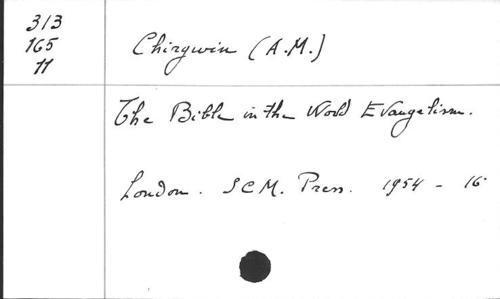 313
165
11
Chirgwin (A.M.)
The Bible in the World Evangelism.
London. SCM. Press. 1954 - 16